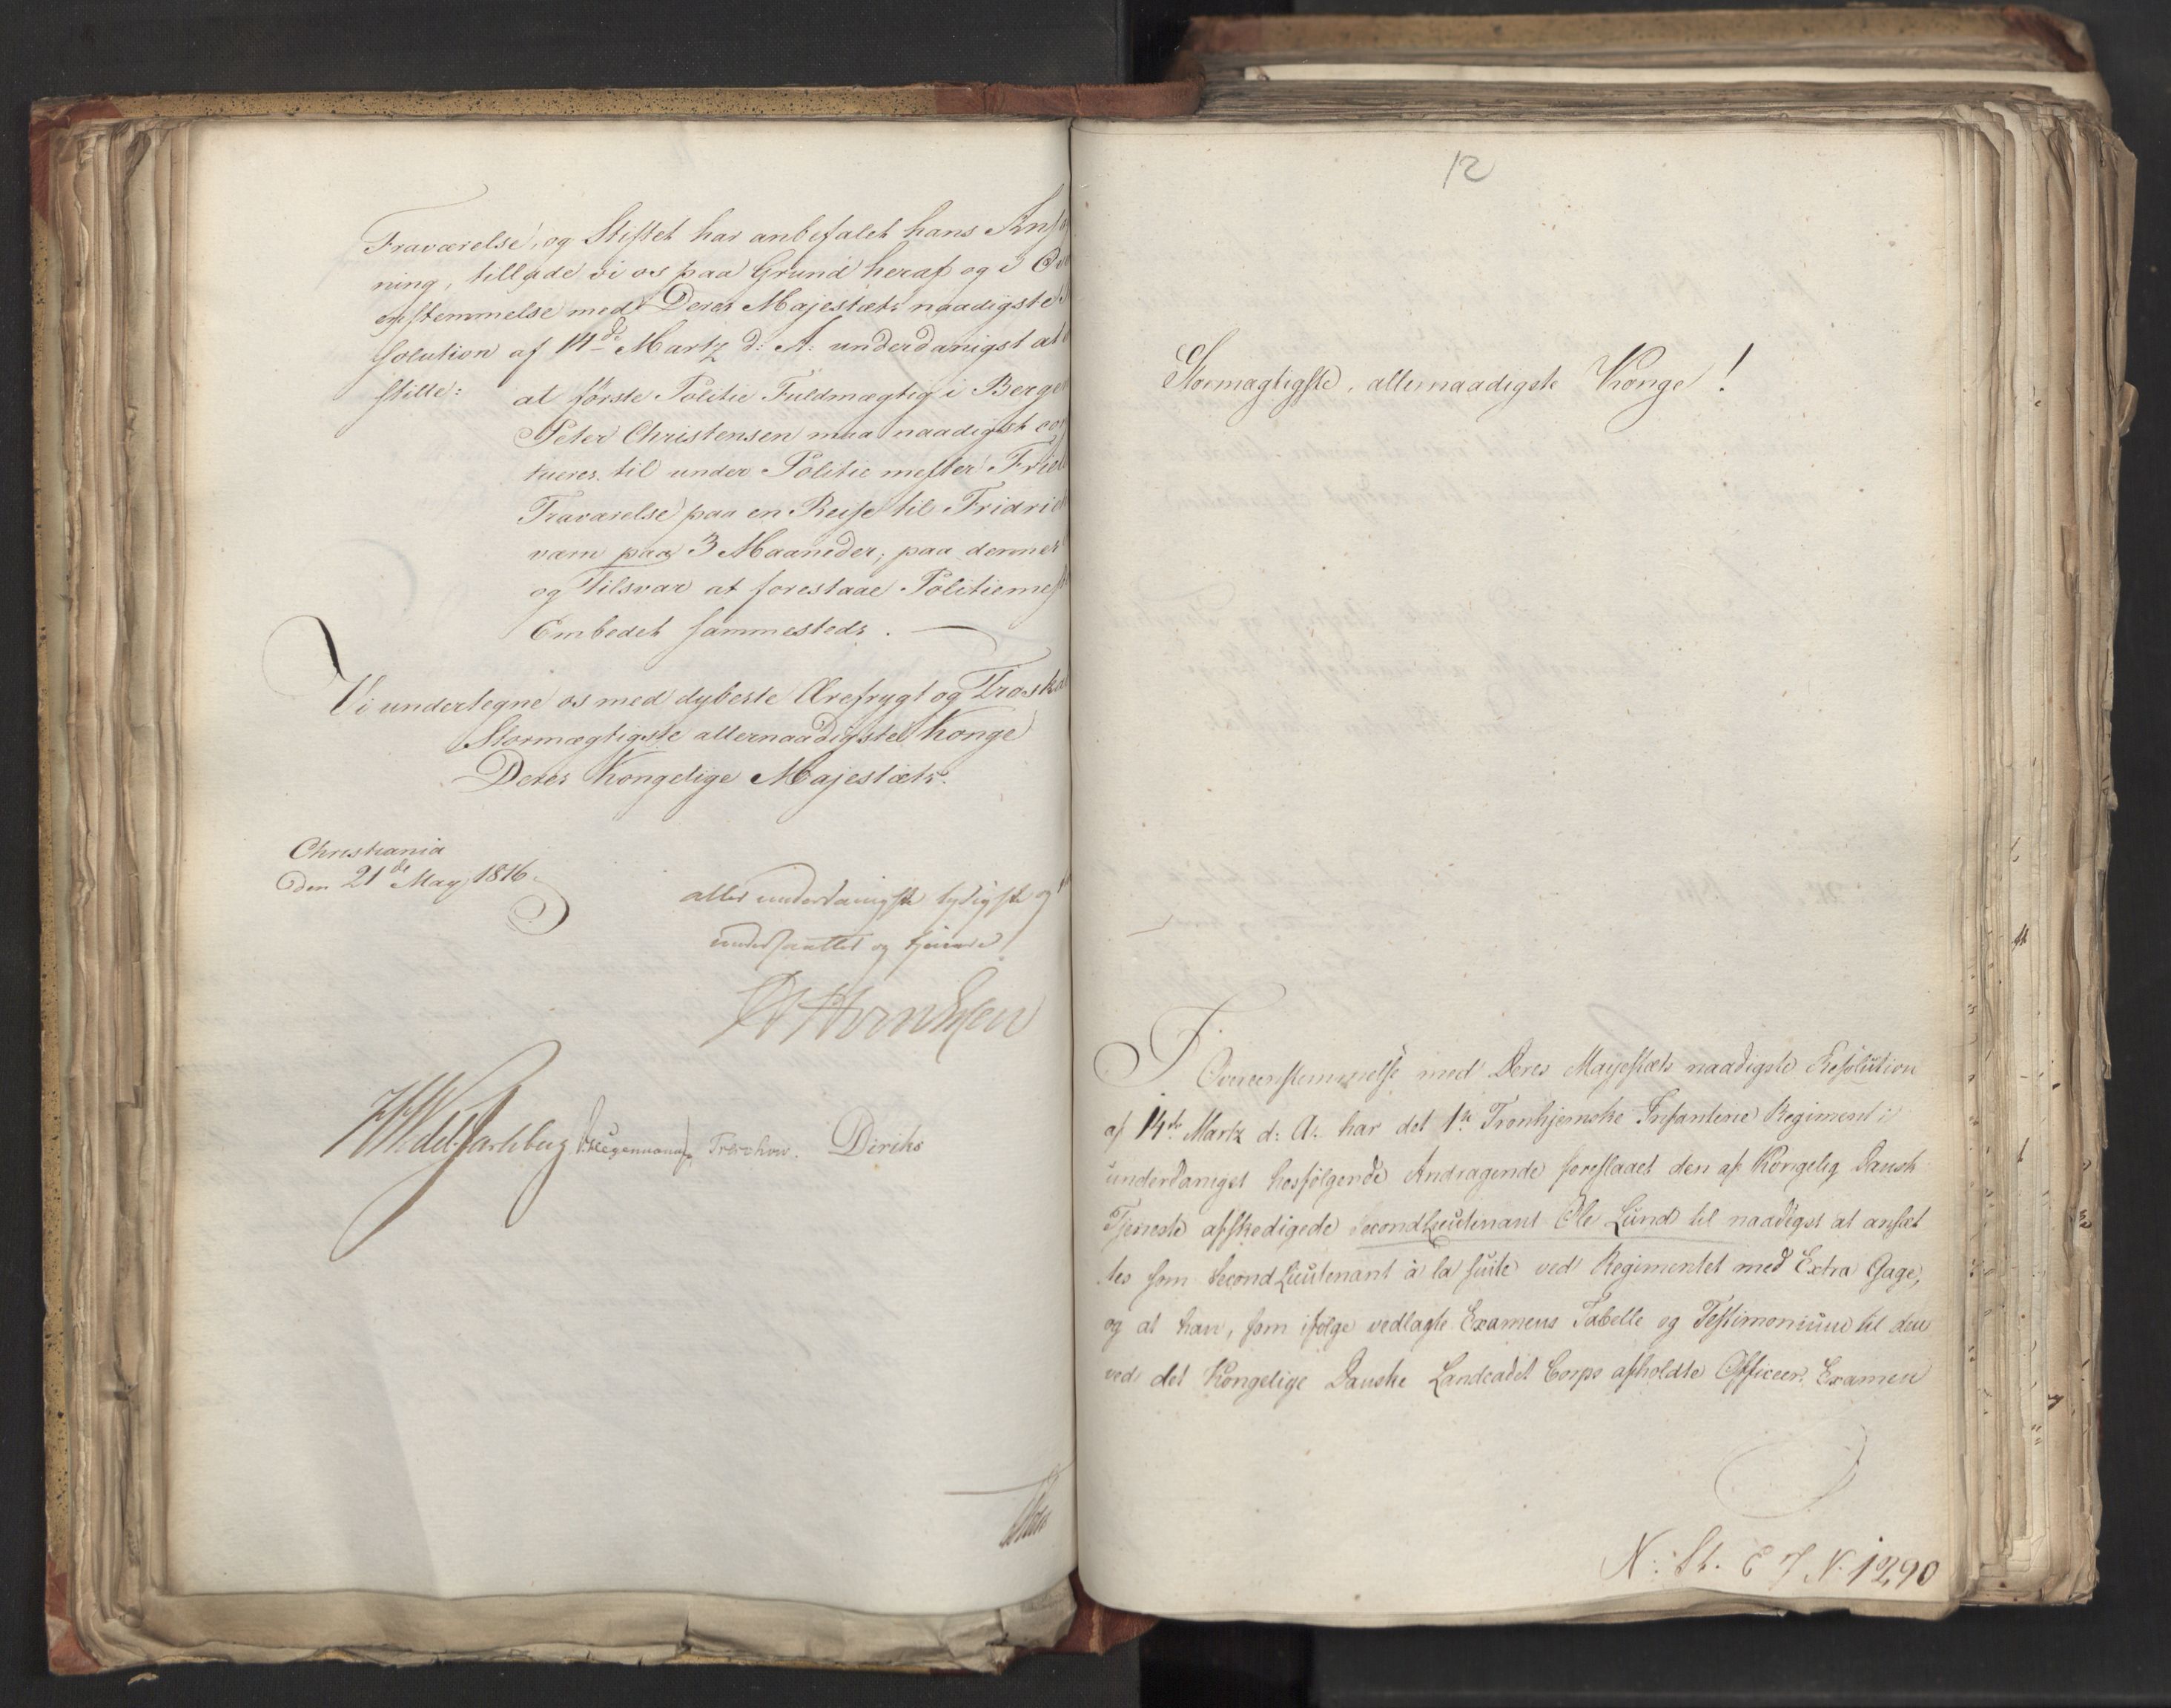 Fraværelse, og Stiftet har anbefalet hans Ansø
ning, tillade vi os paa Grund heraf og i Ov
enstemmelse med Deres Majestæts naadigste
solution af 14de Martz d: A: underdanigst at
stille:
at første Politie Fuldmægtig i Berge
Peter Christensen maa naadigst con
tueres til under Politie mester
Fraværelse paa en Reise til Fridric
værn paa 3 Maaneder, paa
og Tilsvar at forestaae Politiemest
Embedet sammesteds.
Vi undertegne os med dybeste Ærefrygt og Troska
Stormægtigste allernaadigste Konge
Deres Kongelige Majestæts.
Christiania
den 21de May 1816.
aller underdanigste lydigste og
undersaatter og tjenere
Wedel Jarlsberg Hegermann Treschow. Diriks
12
Stormægtigste, allernaadigste Konge!
I Overeenstemmelse med Deres Majestæts naadigste Resolution
af 14de Martz d: A: har det 1te Tronhjemske Infanterie Regiment i
underdanigst hosfølgende Andragende foreslaaet den af Kongelig Dansk
Tjeneste afskedigede SecondLieutenant Ole Lund til naadigst at ansæt
tes som SecondLieutenant à la suite ved Regimentet med Extra Gage,
og at han, som ifølge vedlagte Examens Tabelle og Testimonium til den
ved det Kongelige Danske Landcadet Corps afholdte Officeers Examen
N: St. C 7 N. 1290